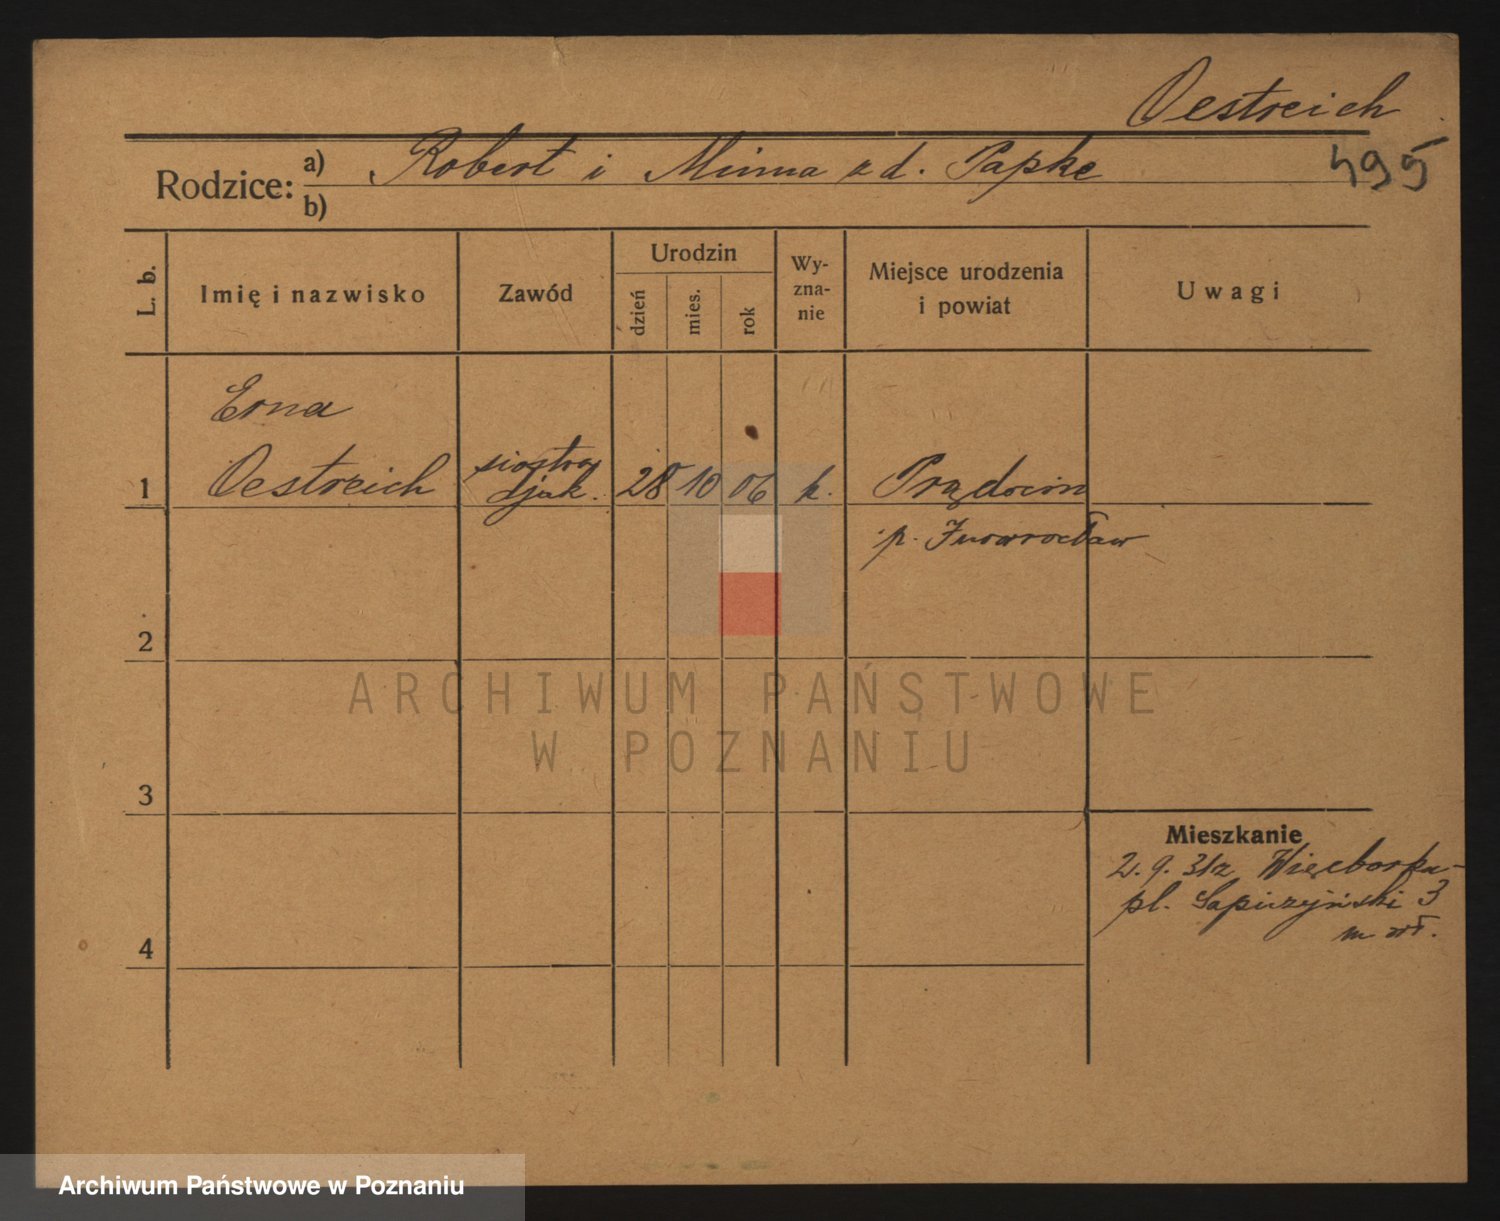 Oestreich
Rodzice: a) Robert i Minna z d. Papke
495
b)
L. b.
Imię i nazwisko
Zawód
Urodzin
dzień
mies.
rok
Wy-
zna-
nie
Miejsce urodzenia
i powiat
Uwagi
Erna
1 Oestreich siostra djak. 28 10 06 k. Prądocin
p. Inowrocław
2
3
4
ARCHIWUM PAŃSTWOWE
W POZNANIU
Mieszkanie
2. 9. 31 z Więcborka
pl. Sapieżyński 3
Archiwum Państwowe w Poznaniu